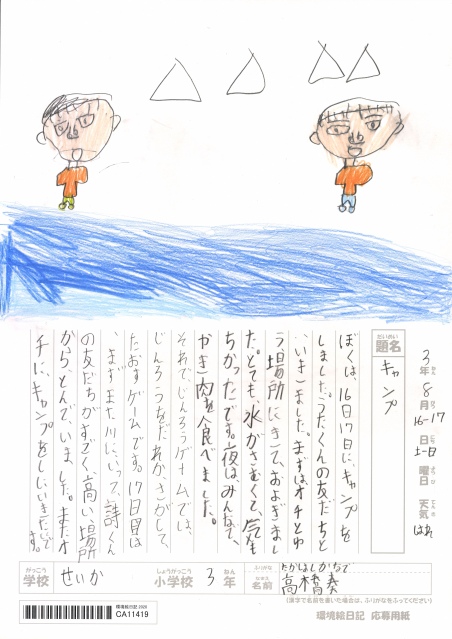 だいめい
題名
キャンプ
3年
8月
16-17日
土-日曜日
天気
はれ
ぼくは、16日17日に、キャンプを
しました。うたくんの友だちと
いきました。まずはオチとゆ
う、場所にきて、およぎまし
た。とても、水がさむくて、気も
ちかったです。夜はみんなで、
やき肉を食べました。
それで、じんろうゲームでは、
じんろうをだれか、さがして、
たおすゲームです。17日目は
、まずまた川にいって、詩くん
の友だちがすごく高い、場所
から、とんでいました。またオ
チに、キャンプをしにいきたいで
す。
がっこう
学校
せいか
しょうがっこう
小学校
3年
ふりがな
たかはしかなで
なまえ
名前
高橋奏
(漢字で名前を書いた場合は、ふりがなをふってください)
環境絵日記 2025
CA11419
環境絵日記 応募用紙